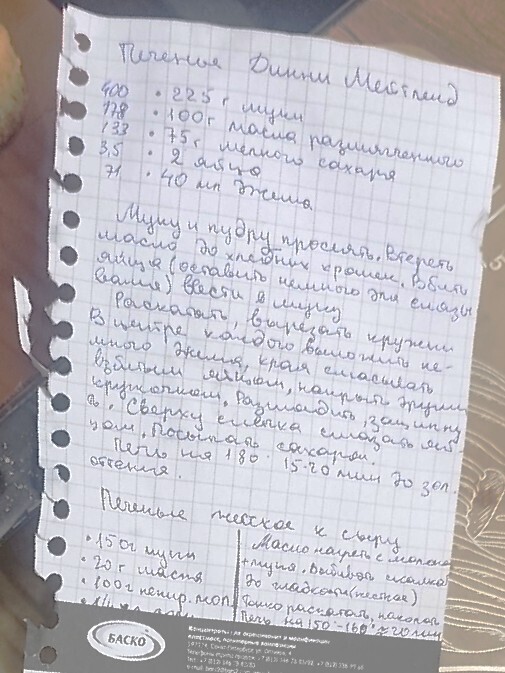 Печенья Динни Мейтленд
400 • 225 г муки
178 • 100 г масла размягченного
133 • 75 г мелкого сахара
3,5 • 2 яйца
71 • 40 мл джема
Муку и пудру просеять. Втереть
масло до хлебных крошек. Взбить
яйца (оставить немного для смазы
вания) ввести в муку
Раскатать, вырезать кружки
В центре каждого выложить не-
много джема, края смазывать
взбитым яйцом, накрыть другим
кружочком. Разгладить,
Сверху слегка смазать
Посыпать сахаром.
Печь на 180° 15-20 мин до зол.
оттения.
Печенье жесткое к сыру
• 150 г муки
• 20 г масла
• 100 г
Масло нагреть с молоком
+ мука.
до гладкости (жесткое)
Тонко раскатать, наколоть
Печь на 150°-160° ≈ 20 мин
БАСКО